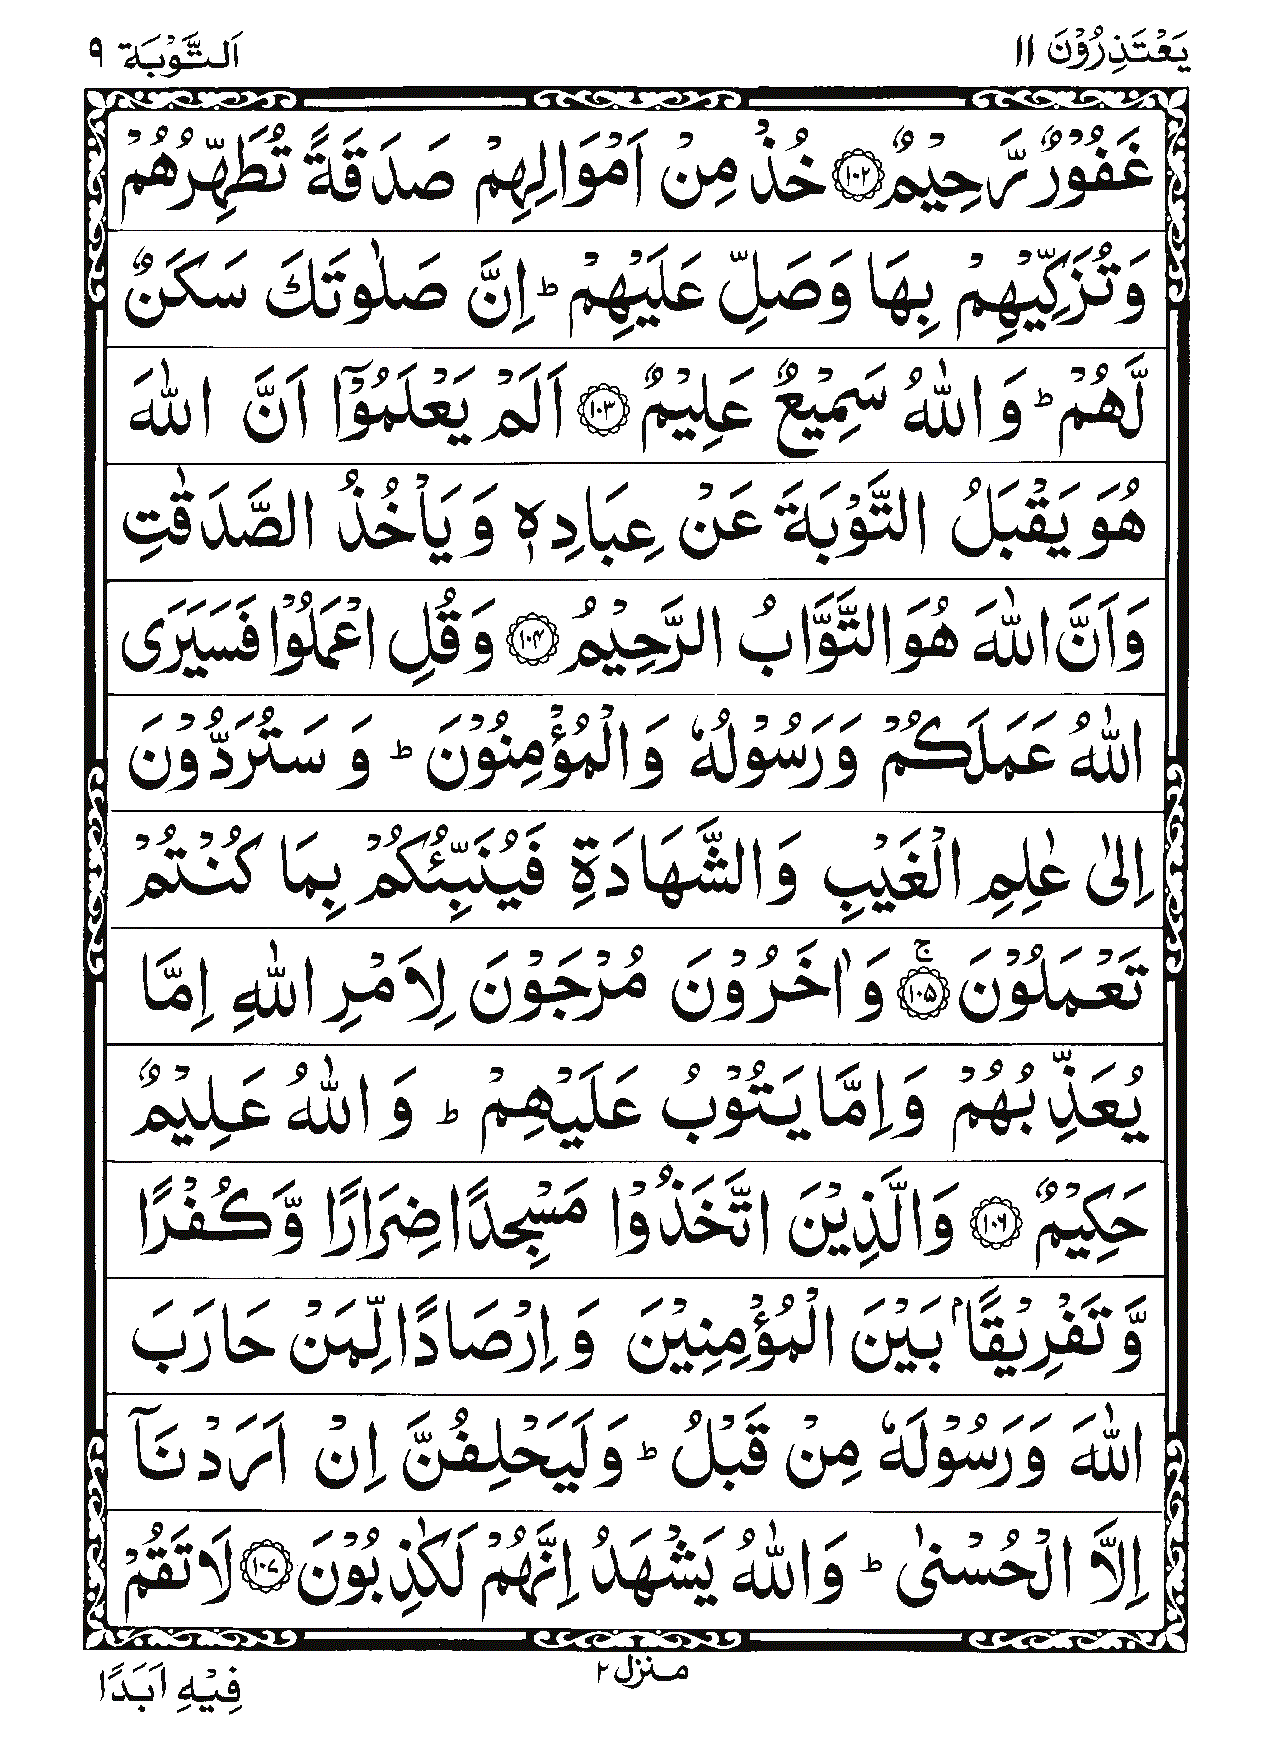 يَعْتَذِرُوْنَ ١١
اَلتَّوْبَة ٩
غَفُوْرٌ رَّحِيْمٌ ﴿۱۰۲﴾ خُذْ مِنْ اَمْوَالِهِمْ صَدَقَةً تُطَهِّرُهُمْ
وَتُزَكِّيْهِمْ بِهَا وَصَلِّ عَلَيْهِمْ ؕ اِنَّ صَلٰوتَكَ سَكَنٌ
لَّهُمْ ؕ وَاللّٰهُ سَمِيْعٌ عَلِيْمٌ ﴿۱۰۳﴾ اَلَمْ يَعْلَمُوْۤا اَنَّ اللّٰهَ
هُوَ يَقْبَلُ التَّوْبَةَ عَنْ عِبَادِهٖ وَيَاْخُذُ الصَّدَقٰتِ
وَاَنَّ اللّٰهَ هُوَ التَّوَّابُ الرَّحِيْمُ ﴿۱۰۴﴾ وَقُلِ اعْمَلُوْا فَسَيَرَى
اللّٰهُ عَمَلَكُمْ وَرَسُوْلُهٗ وَالْمُؤْمِنُوْنَ ؕ وَسَتُرَدُّوْنَ
اِلٰى عٰلِمِ الْغَيْبِ وَالشَّهَادَةِ فَيُنَبِّئُكُمْ بِمَا كُنْتُمْ
تَعْمَلُوْنَ ۚ﴿۱۰۵﴾ وَاٰخَرُوْنَ مُرْجَوْنَ لِاَمْرِ اللّٰهِ اِمَّا
يُعَذِّبُهُمْ وَاِمَّا يَتُوْبُ عَلَيْهِمْ ؕ وَاللّٰهُ عَلِيْمٌ
حَكِيْمٌ ﴿۱۰۶﴾ وَالَّذِيْنَ اتَّخَذُوْا مَسْجِدًا ضِرَارًا وَّكُفْرًا
وَّتَفْرِيْقًاۢ بَيْنَ الْمُؤْمِنِيْنَ وَاِرْصَادًا لِّمَنْ حَارَبَ
اللّٰهَ وَرَسُوْلَهٗ مِنْ قَبْلُ ؕ وَلَيَحْلِفُنَّ اِنْ اَرَدْنَاۤ
اِلَّا الْحُسْنٰى ؕ وَاللّٰهُ يَشْهَدُ اِنَّهُمْ لَكٰذِبُوْنَ ﴿۱۰۷﴾ لَا تَقُمْ
منزل ۲
فِيْهِ اَبَدًا